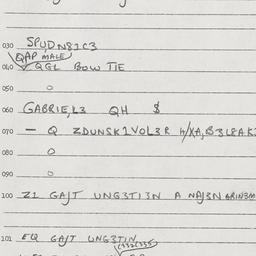 030 SPUDN82C3
QAP MALE
040 QGL BOW TIE
050 0
060 GABRIE,L3 QH $
070 — Q ZDUNSK2VOL3R
080 0
090 0
100 Z1 GAJT UNG3TI3N A
101 EQ GAJT UNG3TIN